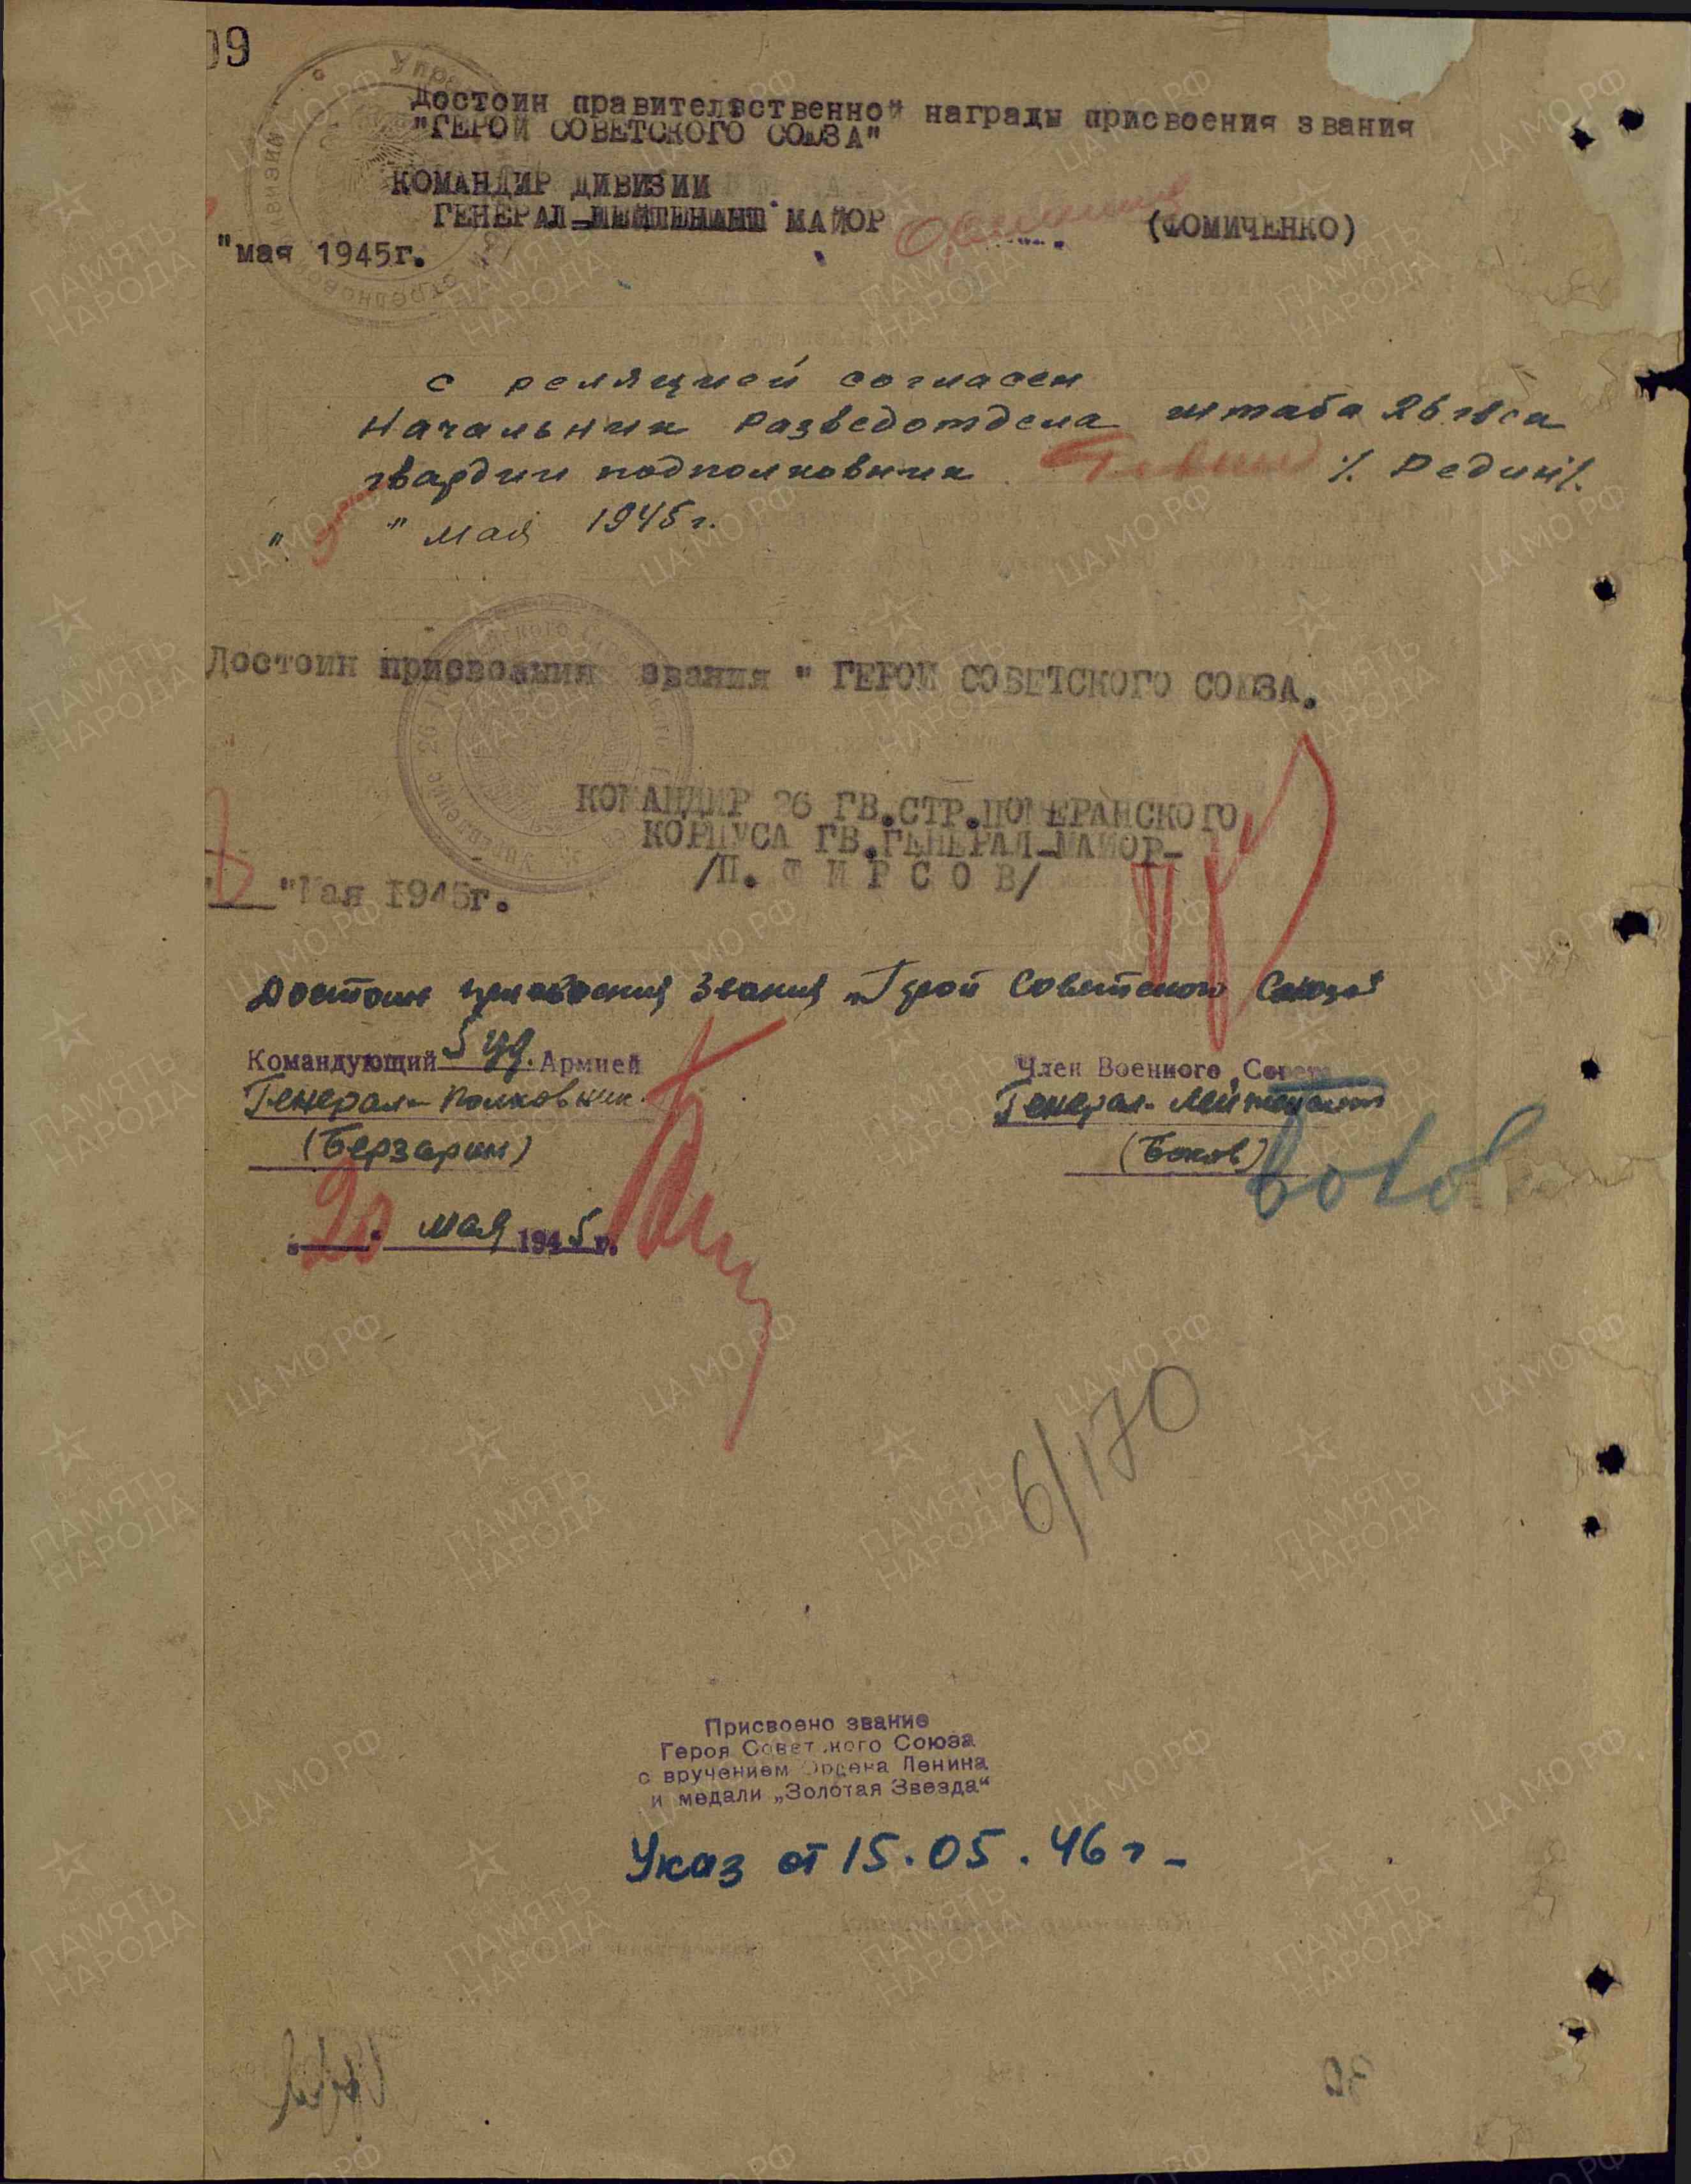 09
Достоин правительственной награды присвоения звания
"ГЕРОЙ СОВЕТСКОГО СОЮЗА"
КОМАНДИР ДИВИЗИИ
ГЕНЕРАЛ-ЛЕЙТЕНАНТ МАЙОР (ФОМИЧЕНКО)
"мая 1945г.
с реляцией согласен
Начальник Разведотдела штаба 26 гвск
гвардии подполковник /. Редин/.
" " мая 1945 г.
Достоин присвоания звания " ГЕРОЙ СОВЕТСКОГО СОЮЗА.
КОМАНДИР 26 ГВ.СТР.ПОМЕРАНСКОГО
КОРПУСА ГВ.ГЕНЕРАЛ-МАЙОР-
/П. Ф И Р С О В/
"Мая 1945г.
Достоин присвоения звания „Герой Советского Союза"
Командующий 5 уд. Армией
Генерал-полковник
(Берзарин)
"20" мая 1945 г.
Член Военного Совета
Генерал-лейтенант
(Боков)
Боков
6/170
Присвоено звание
Героя Советского Союза
с вручением Ордена Ленина
и медали „Золотая Звезда"
Указ от 15.05.46 г -
ПАМЯТЬ НАРОДА
ЦА МО РФ